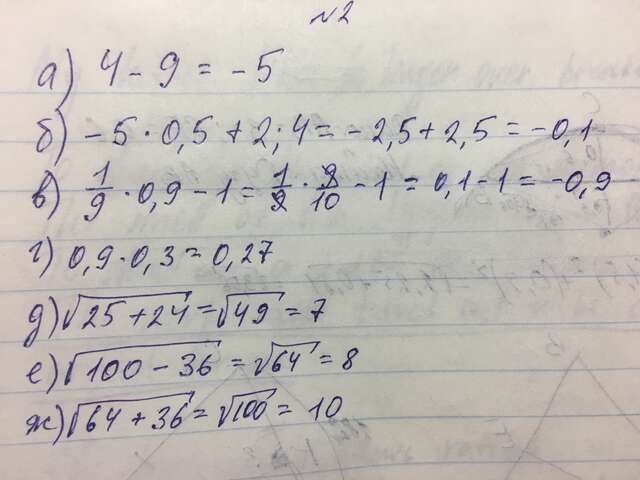 №2
а) 4 - 9 = -5
б) -5 · 0,5 + 2,4 = -2,5 + 2,5 = -0,1
в) 1/9 · 0,9 - 1 = 1/9 · 9/10 - 1 = 0,1 - 1 = -0,9
г) 0,9 · 0,3 = 0,27
д) √25 + 24 = √49 = 7
е) √100 - 36 = √64 = 8
ж) √64 + 36 = √100 = 10